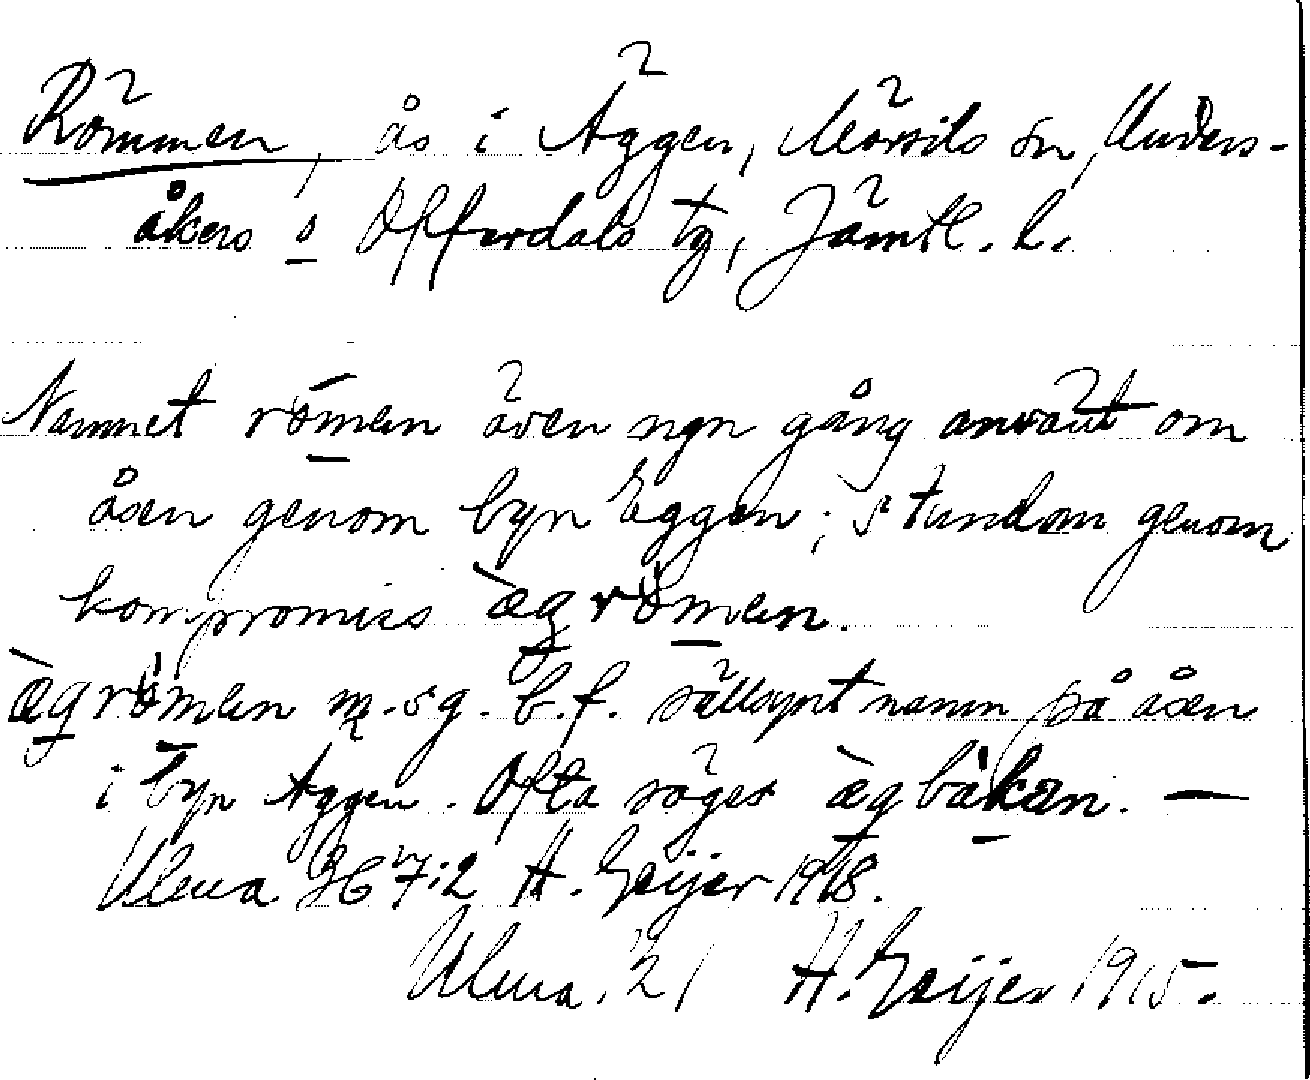 Römmen, ås i Äggen, Mörsils sn, Unders-
åkers o Offerdals tg, Jämtl. l.
Namnet römen även ngn gång använt om
åsen genom byn Eggen; stundom genom
kompromiss ægrömen.
ægrömen m. sg. b. f. sällsynt namn på åsen
i byn Äggen. Ofta säges ægbakan. —
Ulma 367:2 H. Geijer 1918.
Ulma 21 H. Geijer 1915.